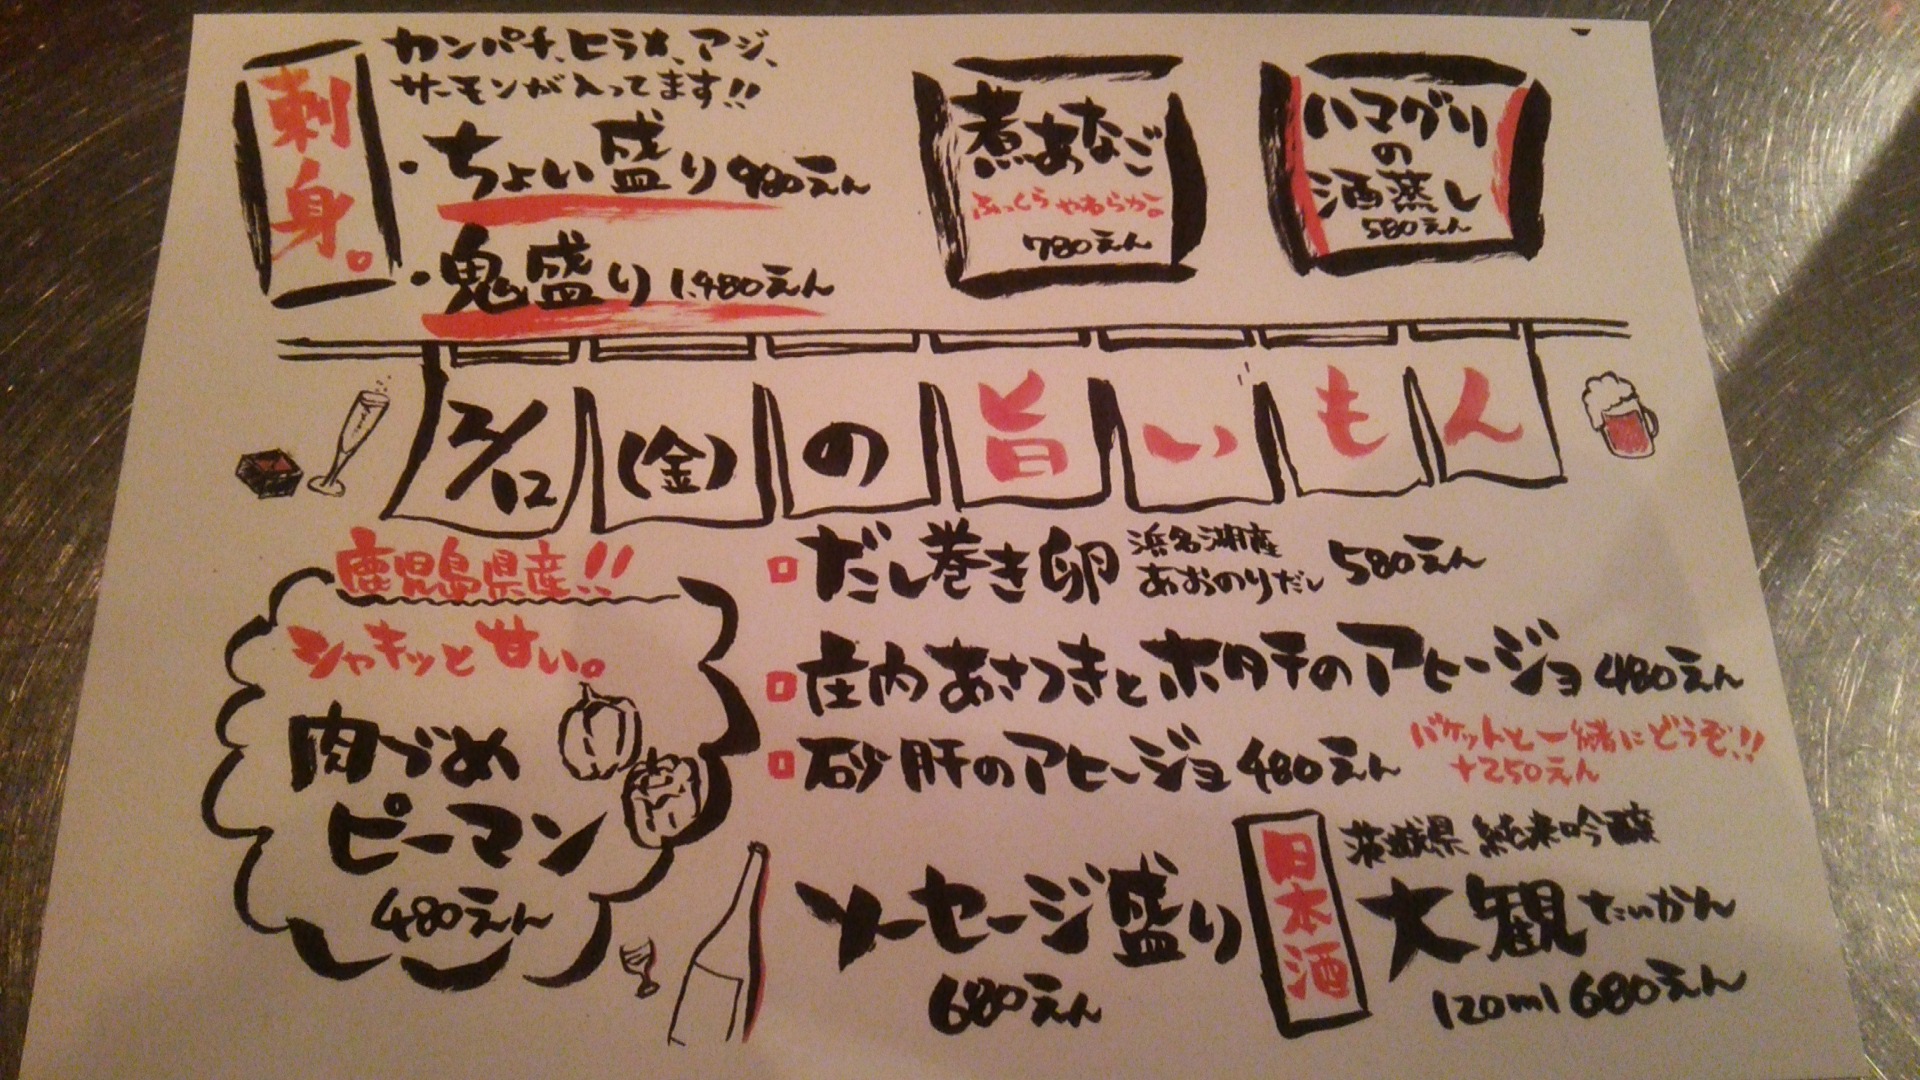 刺身。
カンパチ、ヒラメ、アジ、
サーモンが入ってます!!
・ちょい盛り 980えん
・鬼盛り 1,480えん
煮あなご
ふっくらやわらか。
780えん
ハマグリ
の
酒蒸し
580えん
2/12(金)の旨いもん
鹿児島県産!!
シャキッと甘い。
肉づめ
ピーマン
480えん
だし巻き卵 浜名湖産 あおのりだし 580えん
庄内あさつきとホタテのアヒージョ 480えん
砂肝のアヒージョ 480えん
バケットと一緒にどうぞ!!
+250えん
ソーセージ盛り
680えん
日本酒
茨城県 純米吟醸
大観 たいかん
120ml 680えん